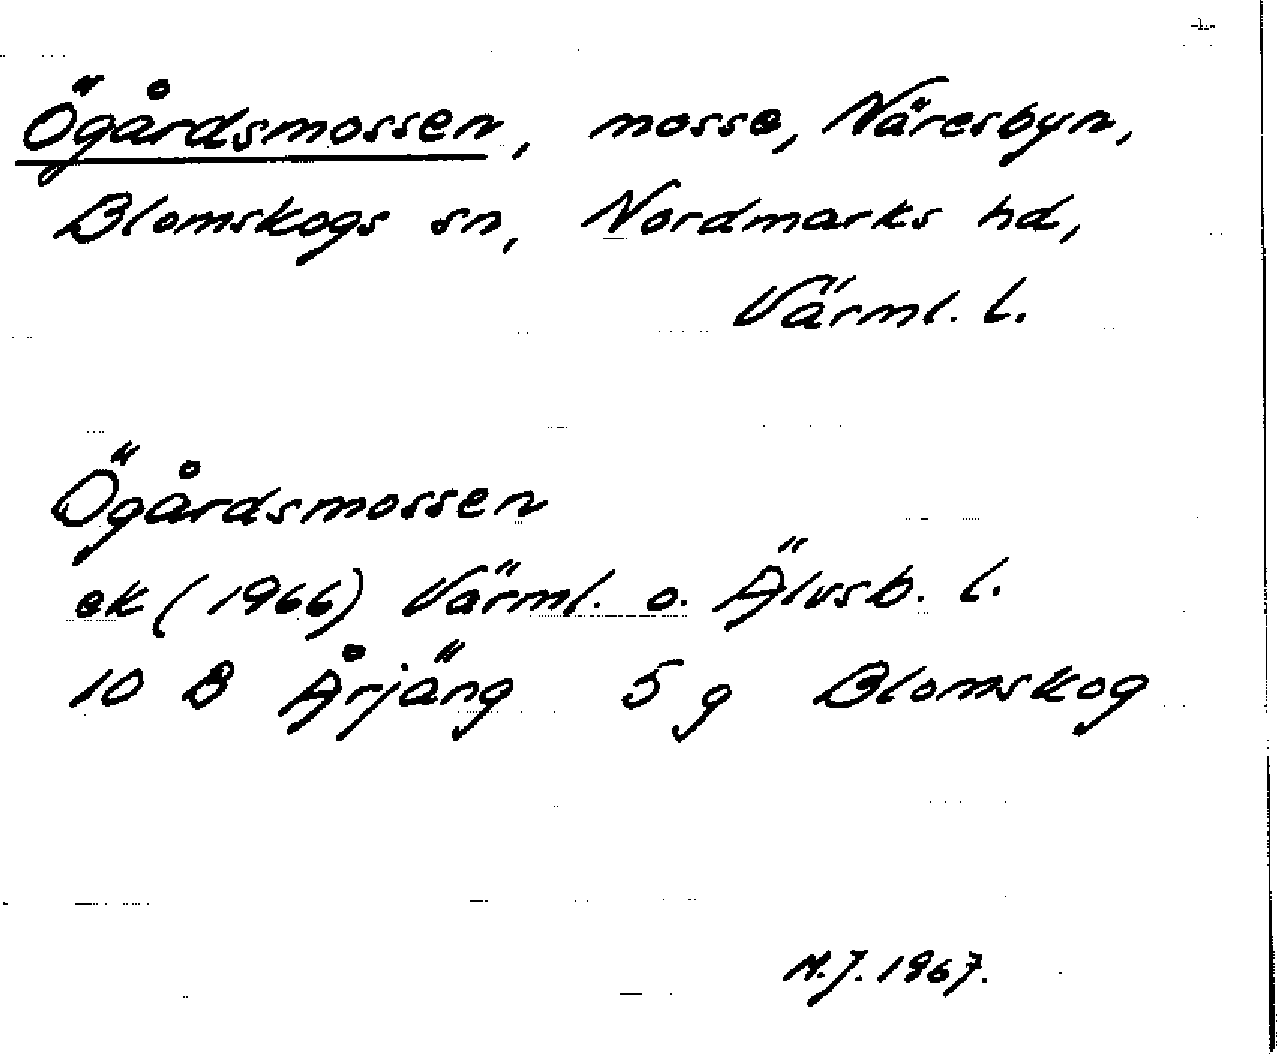 Ögårdsmossen, mosse, Näresbyn,
Blomskogs sn, Nordmarks hd,
Värml. l.
Ögårdsmossen
ek (1966) Värml. o. Älvsb. l.
10 B Årjäng 5 g Blomskog
M.J. 1967.